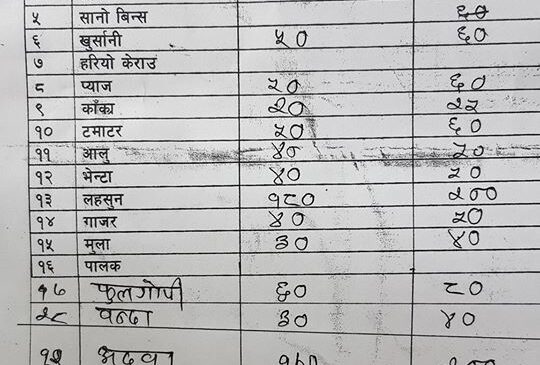 ५ सानो बिन्स ६०
६ खुर्सानी ५० ६०
७ हरियो केराउ
८ प्याज ५० ६०
९ काँक्रा २० २५
१० टमाटर ५० ६०
११ आलु ४० ५०
१२ भेन्टा ४० ५०
१३ लहसुन १८० २००
१४ गाजर ४० ५०
१५ मुला ३० ४०
१६ पालक
१७ फुलगोपी ६० ८०
१८ वन्दा ३० ४०
अदवा